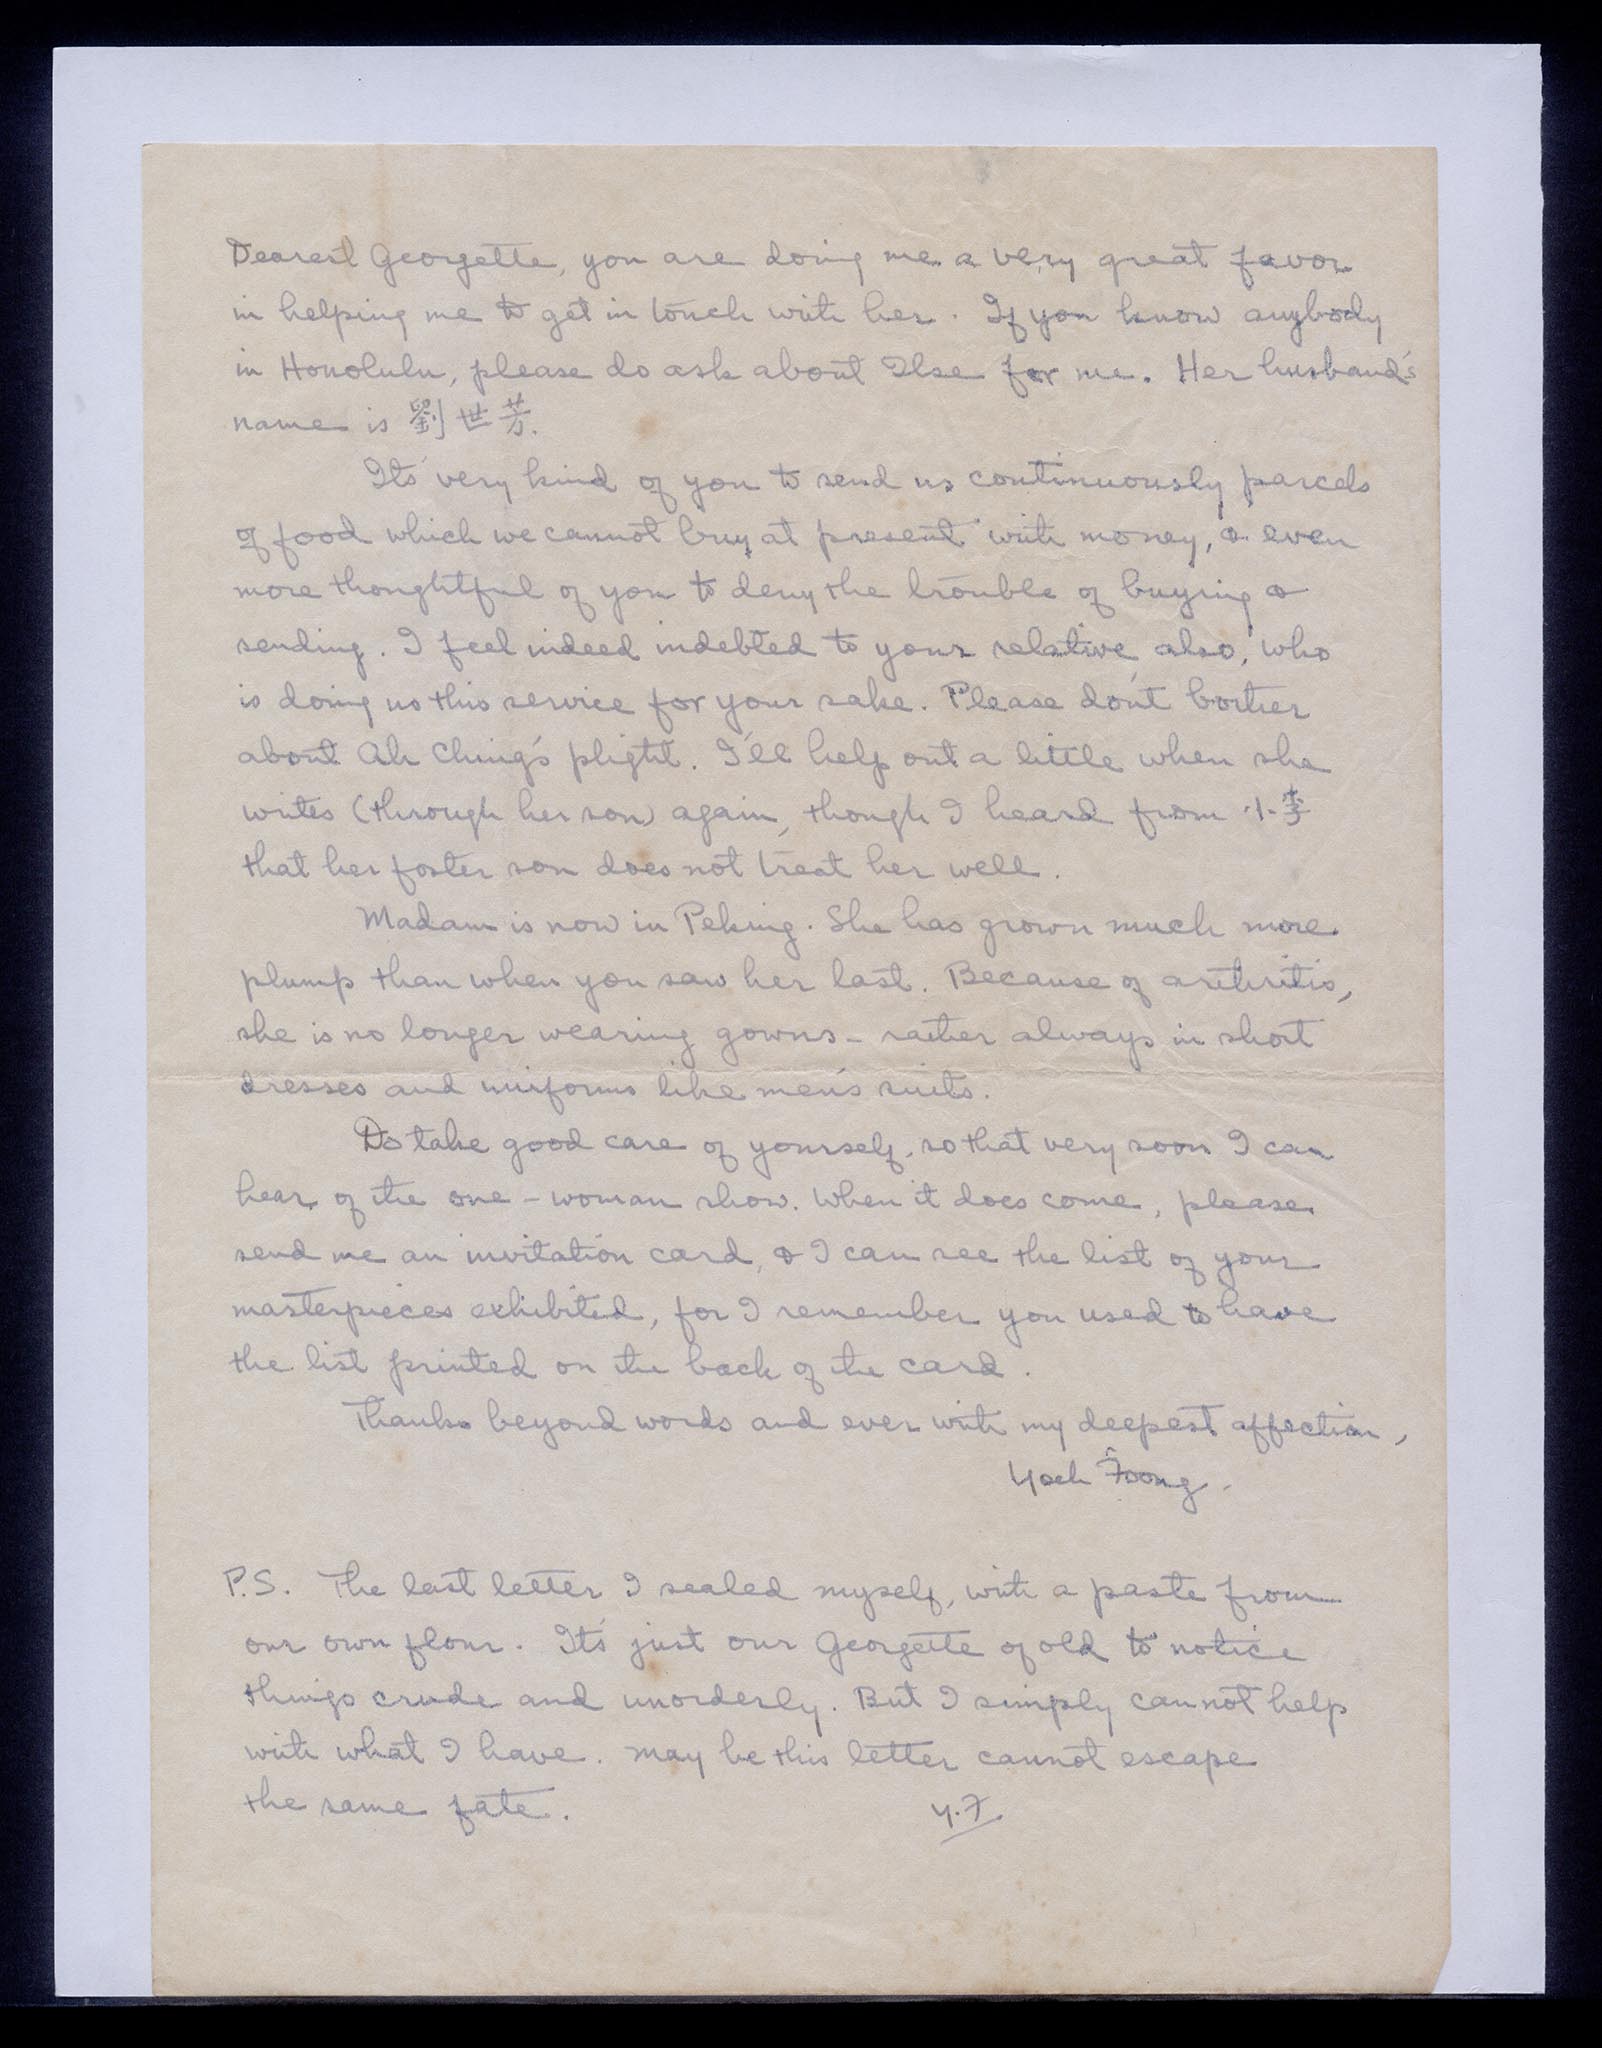 Dearest Georgette, you are doing me a very great favor
in helping me to get in touch with her. If you know anybody
in Honolulu, please do ask about Ilse for me. Her husband's
name is 劉世芳.
Its very kind of you to send us continuously parcels
of food which we cannot buy at present with money, & even
more thoughtful of you to deny the trouble of buying &
sending. I feel indeed indebted to your relative also, who
is doing us this service for your sake. Please don't bother
about Ah Ching's plight. I'll help out a little when she
writes (through her son) again, though I heard from 小李
that her foster son does not treat her well.
Madam is now in Peking. She has grown much more
plump than when you saw her last. Because of arthritis,
she is no longer wearing gowns - rather always in short
dresses and uniforms like men's suits.
Do take good care of yourself, so that very soon I can
hear of the one-woman show. When it does come, please
send me an invitation card, & I can see the list of your
masterpieces exhibited, for I remember you used to have
the list printed on the back of the card.
Thanks beyond words and ever with my deepest affection,
Yoeh Foong.
P.S. The last letter I sealed myself, with a paste from
our own flour. It's just our Georgette of old to notice
things crude and unorderly. But I simply cannot help
with what I have. May be this letter cannot escape
the same fate. Y.F